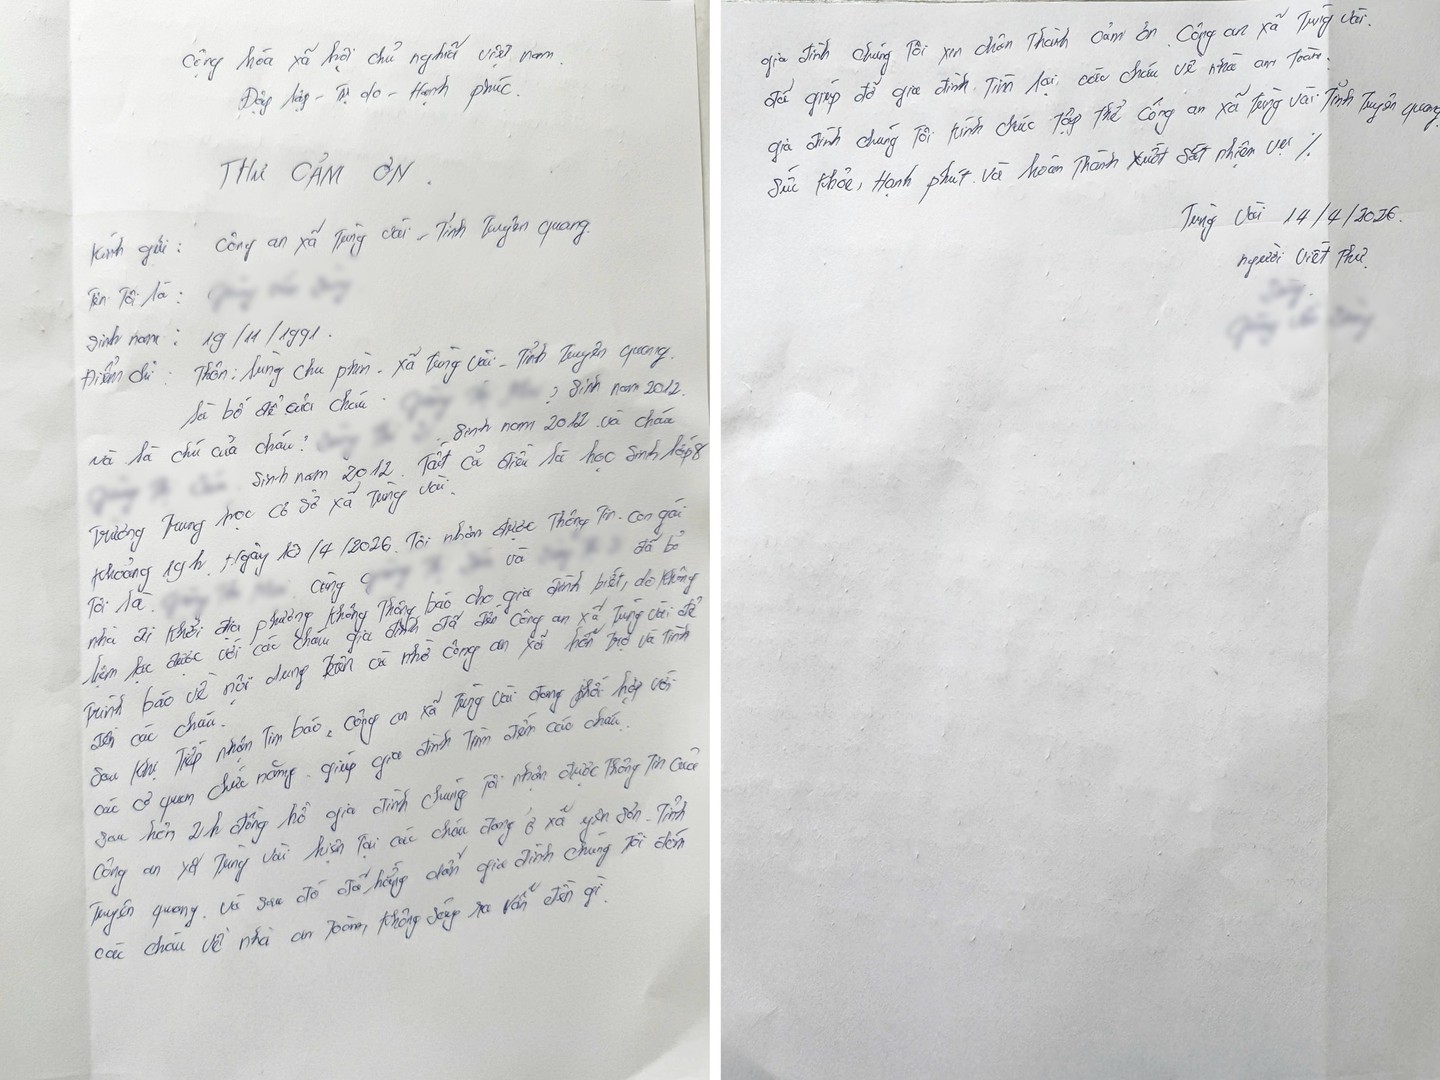 Cộng hòa xã hội chủ nghĩa việt nam.
Độc lập - Tự do - Hạnh phúc.
THƯ CẢM ƠN.
Kính gửi: Công an xã Tùng Vài - Tỉnh Tuyên quang.
Tên Tôi là:
Sinh năm: 19/11/1991.
Điểm chỉ: Thôn: Lùng chu phìn - xã Tùng Vài - Tỉnh Tuyên quang.
là bố đẻ của cháu. Sinh năm 2012.
và là chú của cháu: Sinh năm 2012 và cháu
Sinh năm 2012. Tất cả điều là học sinh lớp 8
Trường Trung học cơ sở xã Tùng Vài.
Khoảng 19h. Ngày 13/4/2026. Tôi nhận được Thông Tin. con gái
Tôi là. cùng và đã bỏ
nhà đi khỏi địa phương không Thông báo cho gia đình biết, do không
liên lạc được với các cháu gia đình đã đến Công an xã Tùng Vài để
Trình báo về nội dung trên và nhờ công an xã hỗ Trợ và tình
đến các cháu.
Sau khi Tiếp nhận Tin báo, Công an xã Tùng Vài đang phối hợp với
các cơ quan chức năng. giúp gia đình Tìm đến các cháu.
Sau hơn 2h đồng hồ gia đình chúng Tôi nhận được Thông Tin của
Công an xã Tùng Vài hiện Tại các cháu đang ở xã yên Sơn - Tỉnh
Tuyên quang. Và sau đó đã hướng dẫn gia đình chúng Tôi đón
các cháu về nhà an Toàn, không sảy ra vấn đền gì.
gia đình chúng Tôi xin chân Thành cảm ơn. Công an xã Tùng Vài.
đã giúp đỡ gia đình Tìm lại các cháu về nhà an toàn.
gia đình chúng Tôi kính chúc Tập Thể Công an xã Tùng Vài Tỉnh Tuyên quang
Sức khỏe, Hạnh phúc và hoàn Thành xuất sắt nhiệm vụ ./.
Tùng Vài 14/4/2026.
người Viết Thư.